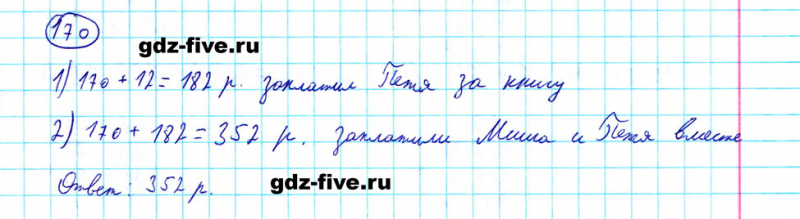 170
gdz-five.ru
1) 170 + 12 = 182 р. заплатил Петя за книгу
2) 170 + 182 = 352 р. заплатили Миша и Петя вместе
Ответ: 352 р.
gdz-five.ru